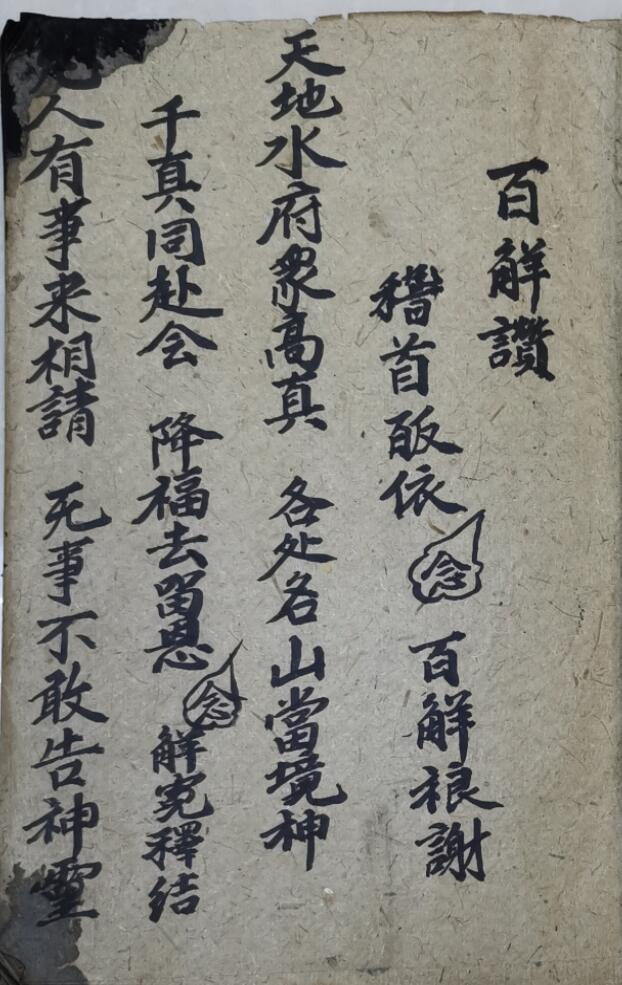 百解讚
稽首皈依 念 百解禳謝
天地水府衆高真 各处各山當境神
千真同赴会 降福去留恩 念 解冤釋结
凡人有事来相請 死事不敢告神靈